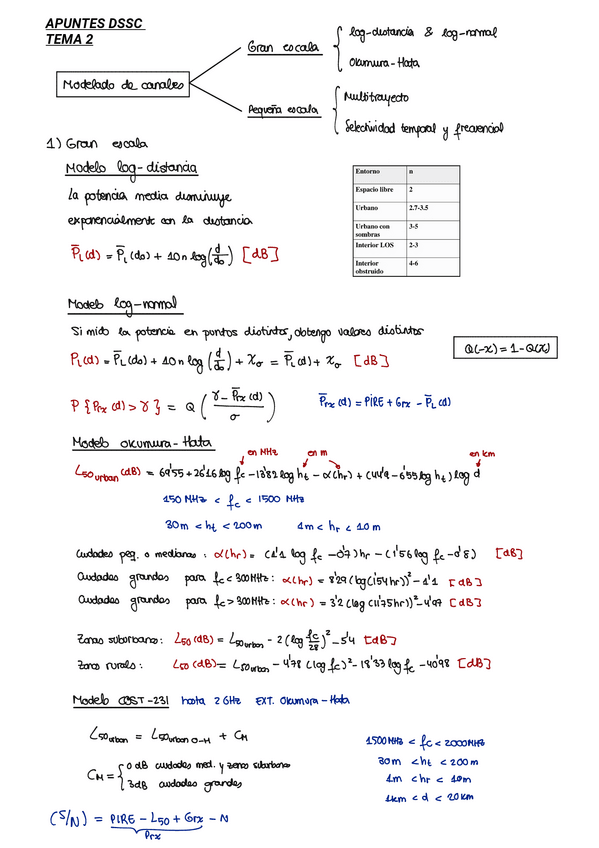 APUNTES DSSC
TEMA 2
Modelado de canales
Gran escala
log-distancia & log-normal
Okumura-Hata
Pequeña escala
Multitrayecto
Selectividad temporal y frecuencial
1) Gran escala
Modelo log-distancia
La potencia media disminuye
exponencialmente con la distancia
P̅L(d) = P̅L(d0) + 10n log(d/d0) [dB]
Entorno n
Espacio libre 2
Urbano 2.7-3.5
Urbano con sombras 3-5
Interior LOS 2-3
Interior obstruido 4-6
Modelo log-normal
Si mido la potencia en puntos distintos, obtengo valores distintos
PL(d) = P̅L(d0) + 10n log(d/d0) + Xσ = P̅L(d) + Xσ [dB]
Q(-x) = 1-Q(x)
P{Prx(d) > γ} = Q((γ - P̅rx(d))/σ)
P̅rx(d) = PIRE + Grx - P̅L(d)
Modelo Okumura-Hata
en MHz en m en km
L50urban (dB) = 69'55 + 26'16 log fc - 13'82 log ht - α(hr) + (44'9 - 6'55 log ht) log d
150 MHz < fc < 1500 MHz
30m < ht < 200m 1m < hr < 10m
Ciudades peq. o medianas: α(hr) = (1'1 log fc - 0'7) hr - (1'56 log fc - 0'8) [dB]
Ciudades grandes para fc < 300MHz: α(hr) = 8'29 (log(1'54hr))² - 1'1 [dB]
Ciudades grandes para fc > 300MHz: α(hr) = 3'2 (log(11'75hr))² - 4'97 [dB]
Zonas suburbanas: L50(dB) = L50urban - 2(log fc/28)² - 5'4 [dB]
Zonas rurales: L50(dB) = L50urban - 4'78 (log fc)² - 18'33 log fc - 40'98 [dB]
Modelo COST-231 hasta 2GHz EXT. Okumura-Hata
L50urban = L50urban O-H + CM
CM = { 0 dB ciudades med. y zonas suburbanas
3dB ciudades grandes
1500MHz < fc < 2000MHz
30m < ht < 200m
1m < hr < 10m
1km < d < 20km
(S/N) = PIRE - L50 + Grx - N
Prx